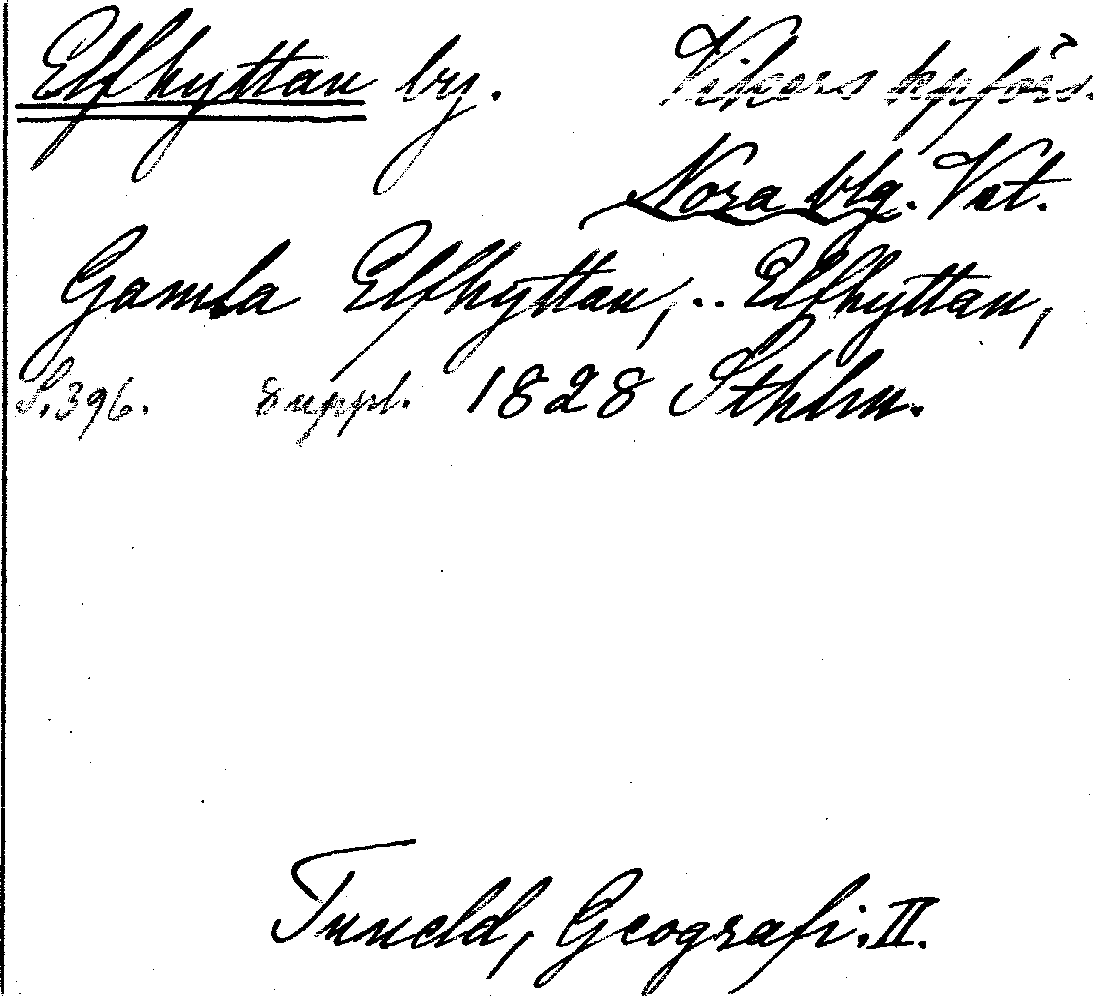 Elfhyttan by. Vikers kpförs.
Nora blg. Vstm.
Gamla Elfhyttan, .. Elfhyttan,
S.396. Suppl. 1828 Sthlm.
Tuneld, Geografi. II.